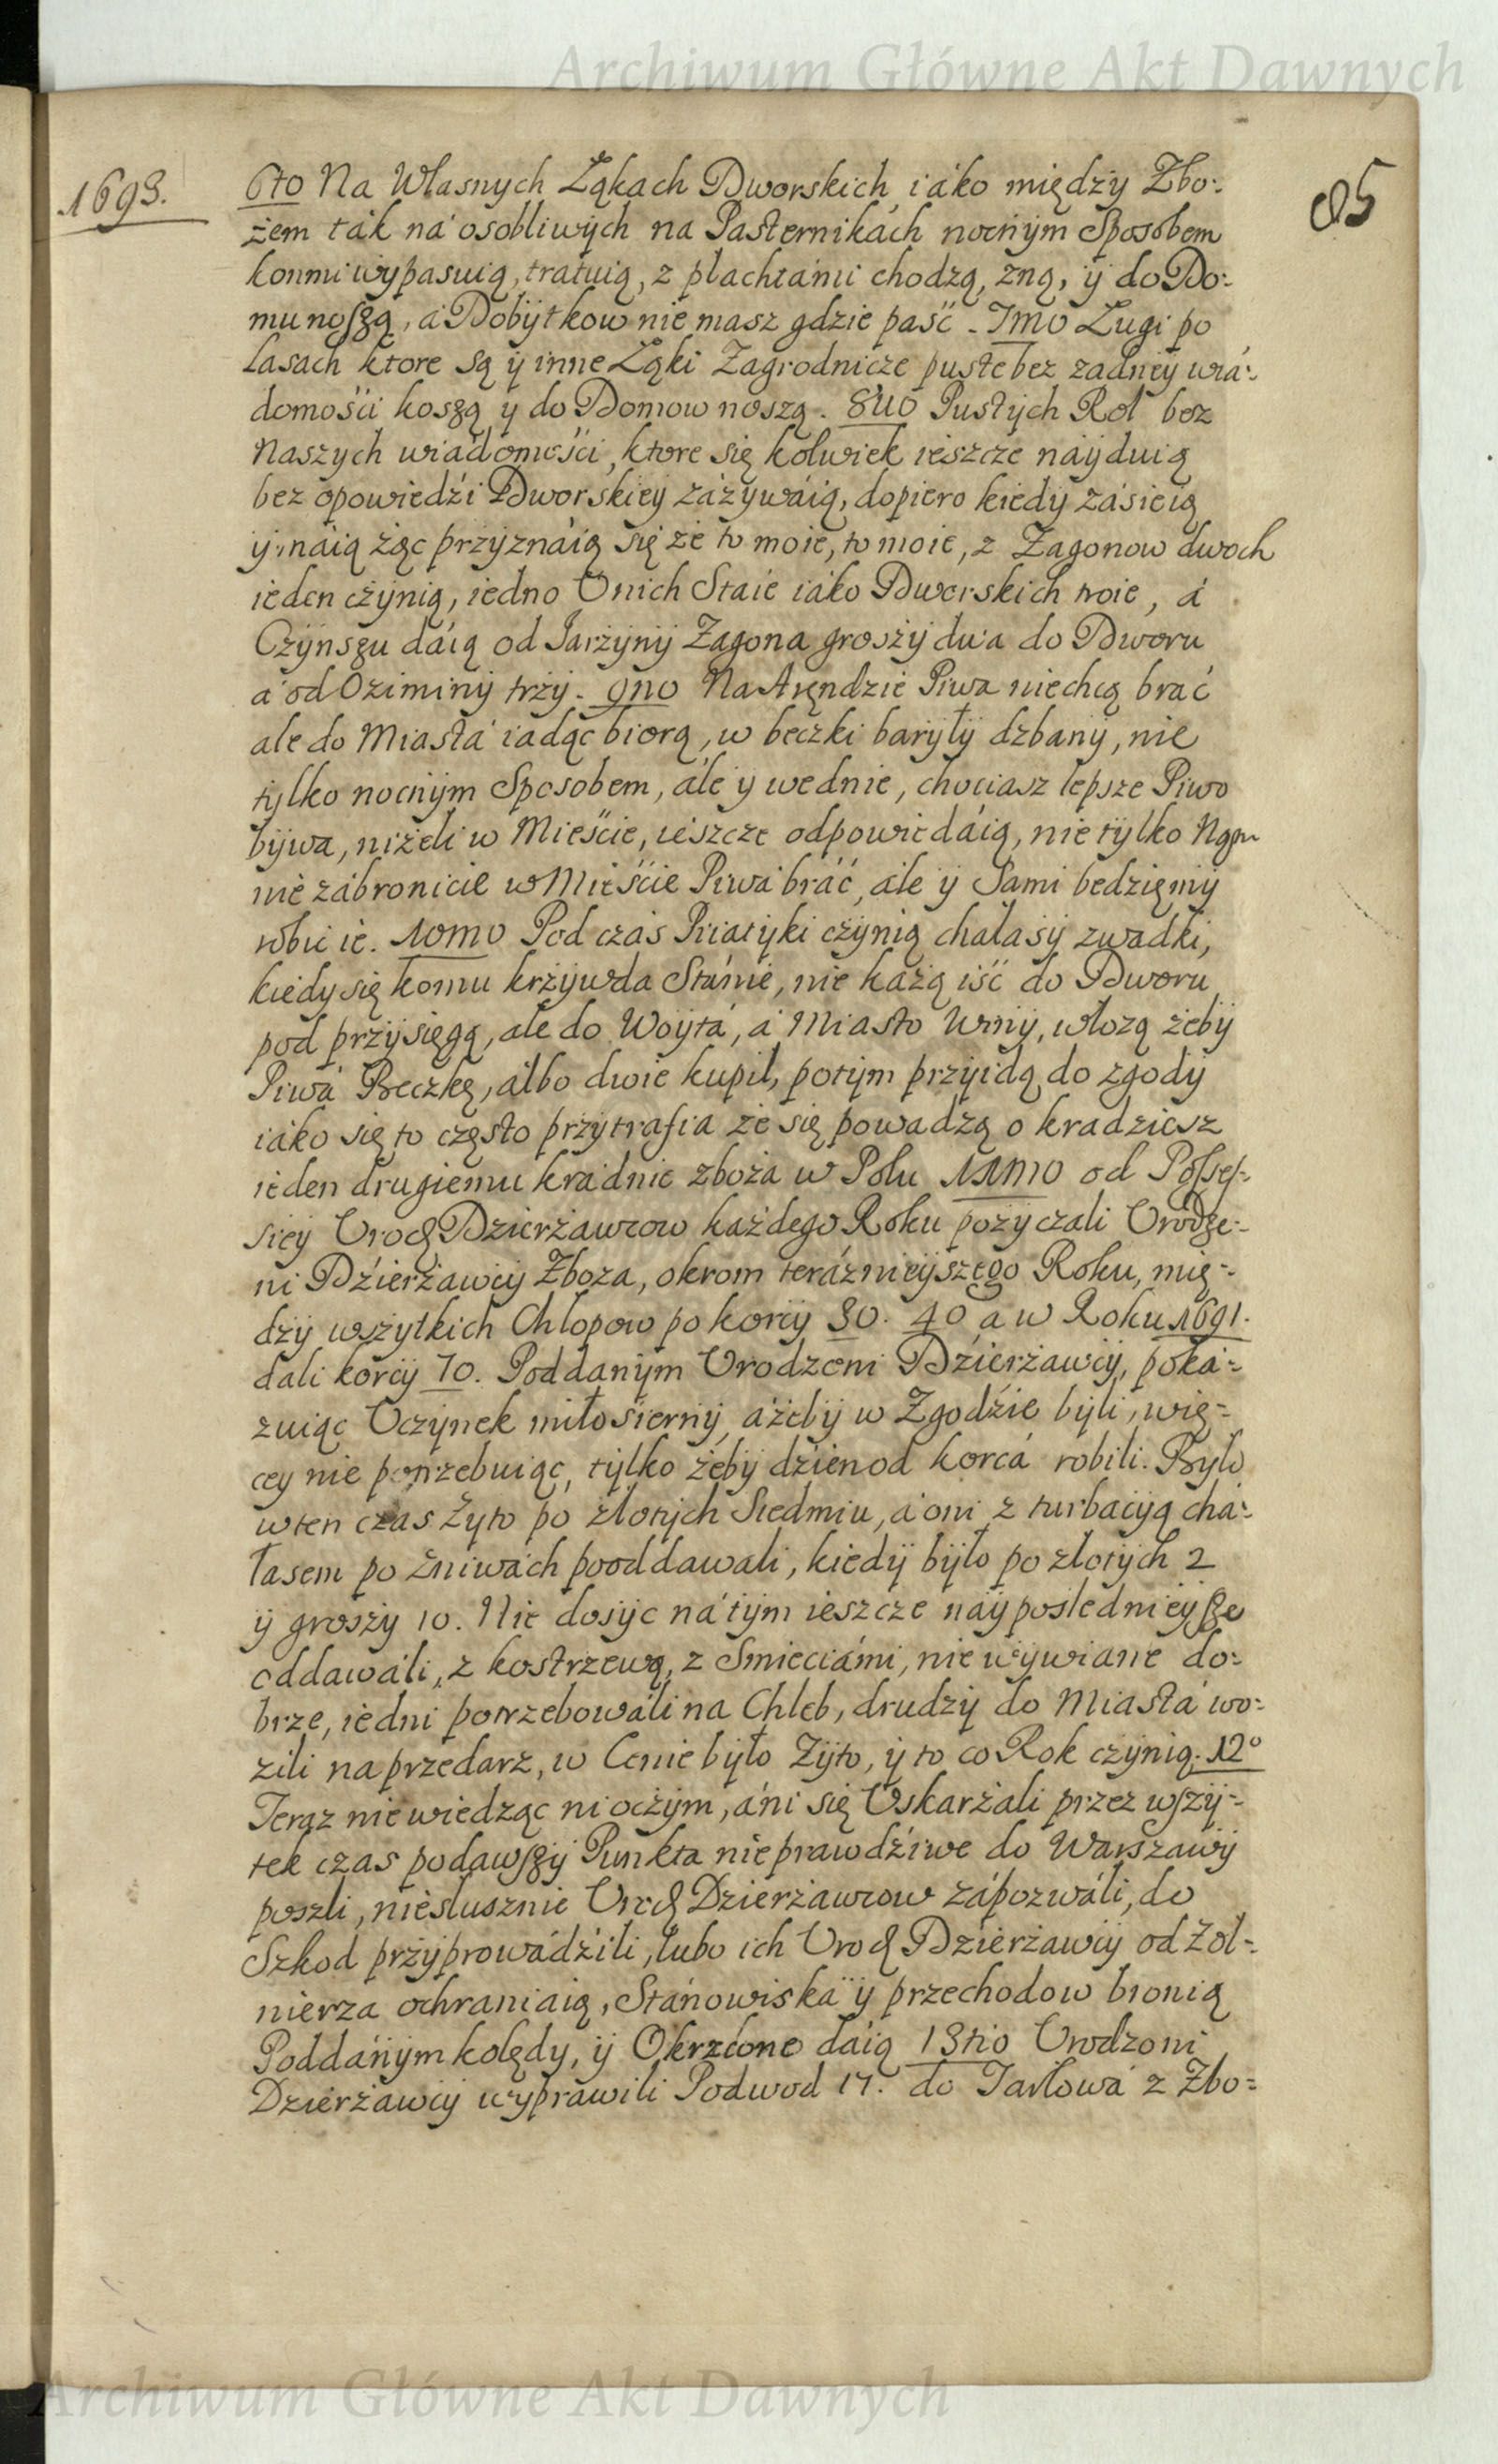 Archiwum Główne Akt Dawnych
1693.
85
6to Na Własnych Łąkach Dworskich, iáko między Zbo-
żem ták ná osobliwych na Pasternikách nocnym Sposobem
konmi wypasuią, tratuią, z płachtámi chodzą, żną, ÿ do Do-
mu noszą, á Dobytkow nie masz gdzie paść. 7mo Ługi po
Lasach ktore są ÿ inne Łąki Zagrodnicze puste bez żadney wiá-
domości koszą y do Domow noszą. 8uo Pustych Rol bez
Naszych wiádomości, ktore się kolwiek ieszcze náyduią
bez opowiedźi Dworskiey záżywáią, dopiero kiedy zásieią
y máią żąc przyznáią się że to moie, to moie, z Zagonow dwoch
ieden czynią, iedno U nich Staie iáko Dworskich troie, á
Czynszu dáią od Jarzyny Zagona groszy dwa do Dworu
á od Oziminy trzy. 9no Na Aręndzie Piwa niechcą brać
ale do Miastá iadąc biorą, w beczki baryły dzbany, nie
tylko nocnym Sposobem, ále y wednie, chociasz lepsze Piwo
bywa, niżeli w Mieście, ieszcze odpowiedáią, nie tylko Nąm
nie zábronicie w Mieście Piwá bráć, ale ÿ Sami bedzięmy
robić ie. 10mo Pod czás Priatyki czynią chałasy zwadki,
kiedy się komu krzywda Stánie, nie każą iść do Dworu
pod przysięgą, ale do Woytá, á Miasto Winy, włożą żeby
Piwá Beczkę, álbo dwie kupił, potym przyidą do zgody
iáko się to często przytrafia że się powadzą o kradziesz
ieden drugiemu krádnie zboża w Polu 11mo od Posses-
siey Urodz Dzierżawcow każdego Roku pożyczali Urodze-
ni Dźierżawcy Zboża, okrom teráznieyszego Roku, mię-
dzy wszytkich Chłopow po korcy 30. 40 a w Roku 1691.
dali korcy 70. Poddanym Urodzeni Dzierżawcy, poká-
zuiąc Uczynek miłosierny, áżeby w Zgodźie byli, wię-
cey nie potrzebuiąc, tylko żeby dzień od korcá robili. Było
wten czas Żyto po złotych Siedmiu, á oni z turbacyą chá-
łasem po Żniwách pooddawali, kiedy było po złotych 2
ÿ groszy 10. Nie dosyc ná tym ieszcze náy poslednieysze
oddawáli, z kostrzewą, z Smieciámi, nie wywiane do-
brze, iedni potrzebowáli na Chleb, drudzy do Miastá wo-
zili na przedarz, w Cenie było Żyto, y to co Rok czynią. 12o
Teraz nie wiedząc ni oczym, áni się Uskarżali przez wszy-
tek czas podawszy Punkta nieprawdźiwe do Warszawy
poszli, niesłusznie Urodz Dzierżawcow zápozwáli, do
Szkod przyprowádźili, lubo ich Urodz Dzierżawcy od Żoł-
nierza ochraniaią, Stánowiská ÿ przechodow bronią
Poddánym kolędy, ÿ Okrzćone dáią 13tio Urodzoni
Dzierżawcy wyprawili Podwod 17. do Tarłowá z Zbo-
Archiwum Główne Akt Dawnych